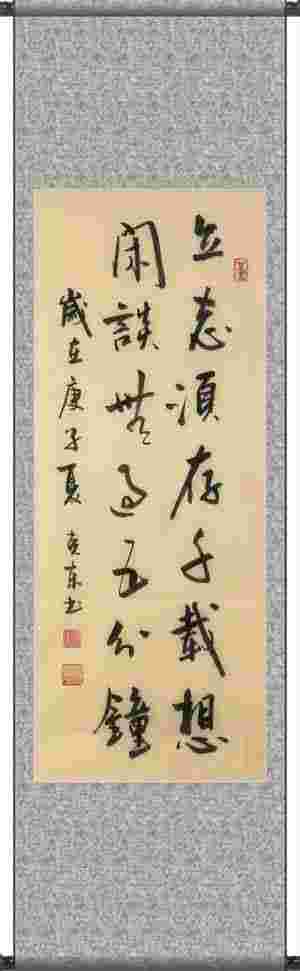 立志須存千載想
閑談無過五分鐘
歲在庚子夏 東書